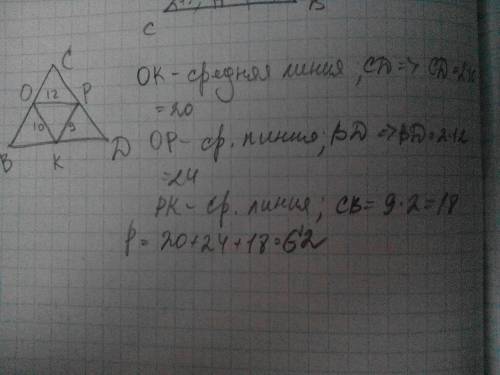 C
B
C
O 12 P
10 9
B K D
OK - средняя линия, CD => CD=2·10
=20
OP - ср. линия; BD => BD=2·12
=24
PK - ср. линия; CB= 9·2=18
P= 20+24+18=62